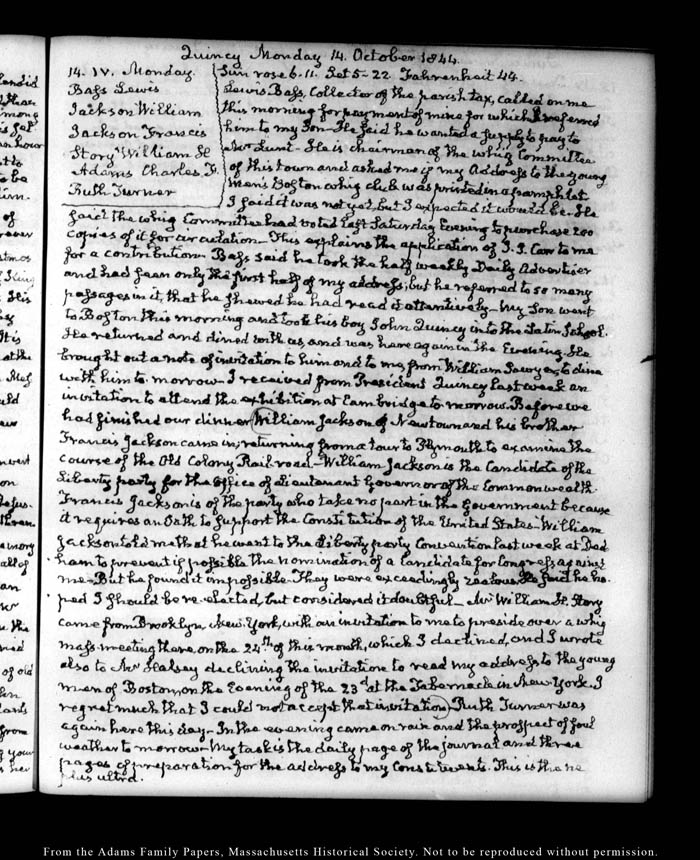 Quincy Monday 14. October 1844.
14. IV. Monday.
Bass Lewis
Jackson William
Jackson Francis
Story William H
Adams Charles F.
Ruth Turner
Sun rose 6-11. Set 5-22. Fahrenheit 44.
Lewis Bass, Collector of the parish tax, called on me
this morning for payment of mine for which I referred
him to my Son — He said he wanted a supply to pay to
Mr Lunt — He is chairman of the whig Committee
of this town and asked me if my Address to the young
men's Boston whig club was printed in a pamphlet
I said it was not yet, but I expected it would be. He
said the whig Committee had voted last Saturday Evening to purchase 200
copies of it for circulation — This explains the application of J. J. to me
for a contribution — Bass said he took the half weekly Daily Advertiser
and had seen only the first half of my address, but he referred to so many
passages in it, that he shewed he had read it attentively — My Son went
to Boston this morning and took his boy John Quincy into the Latin School.
He returned and dined with us, and was here again in the Evening. He
brought out a note of invitation to him and to me, from William Sawyer, to dine
with him to-morrow — I received from President Quincy last week an
invitation to attend the exhibition at Cambridge to-morrow. Before we
had finished our dinner William Jackson of Newton and his brother
Francis Jackson came in, returning from a tour to Plymouth to examine the
course of the Old Colony Rail-road — William Jackson is the Candidate of the
Liberty party for the Office of Lieutenant Governor of the Commonwealth.
Francis Jackson is of the party who take no part in the Government because
it requires an Oath to support the Constitution of the United States — William
Jackson told me that he went to the Liberty party Convention last week at Ded
ham to prevent if possible the nomination of a Candidate for Congress against
me — But he found it impossible — They were exceedingly zealous. He said he ho
ped I should be re-elected, but considered it doubtful — Mr William H. Story
came from Brooklyn, New-York, with an invitation to me to preside over a whig
mass meeting there, on the 24th of this month, which I declined, and I wrote
also to Mr Halsey declining the invitation to read my address to the young
men of Boston, on the Evening of the 23d at the Tabernacle in New-York. I
regret much that I could not accept that invitation. Ruth Turner was
again here this day — In the evening came on rain and the prospect of foul
weather to-morrow — My task is the daily page of the journal and three
pages of preparation for the address to my Constituents. This is the ne
plus ultra.
From the Adams Family Papers, Massachusetts Historical Society. Not to be reproduced without permission.